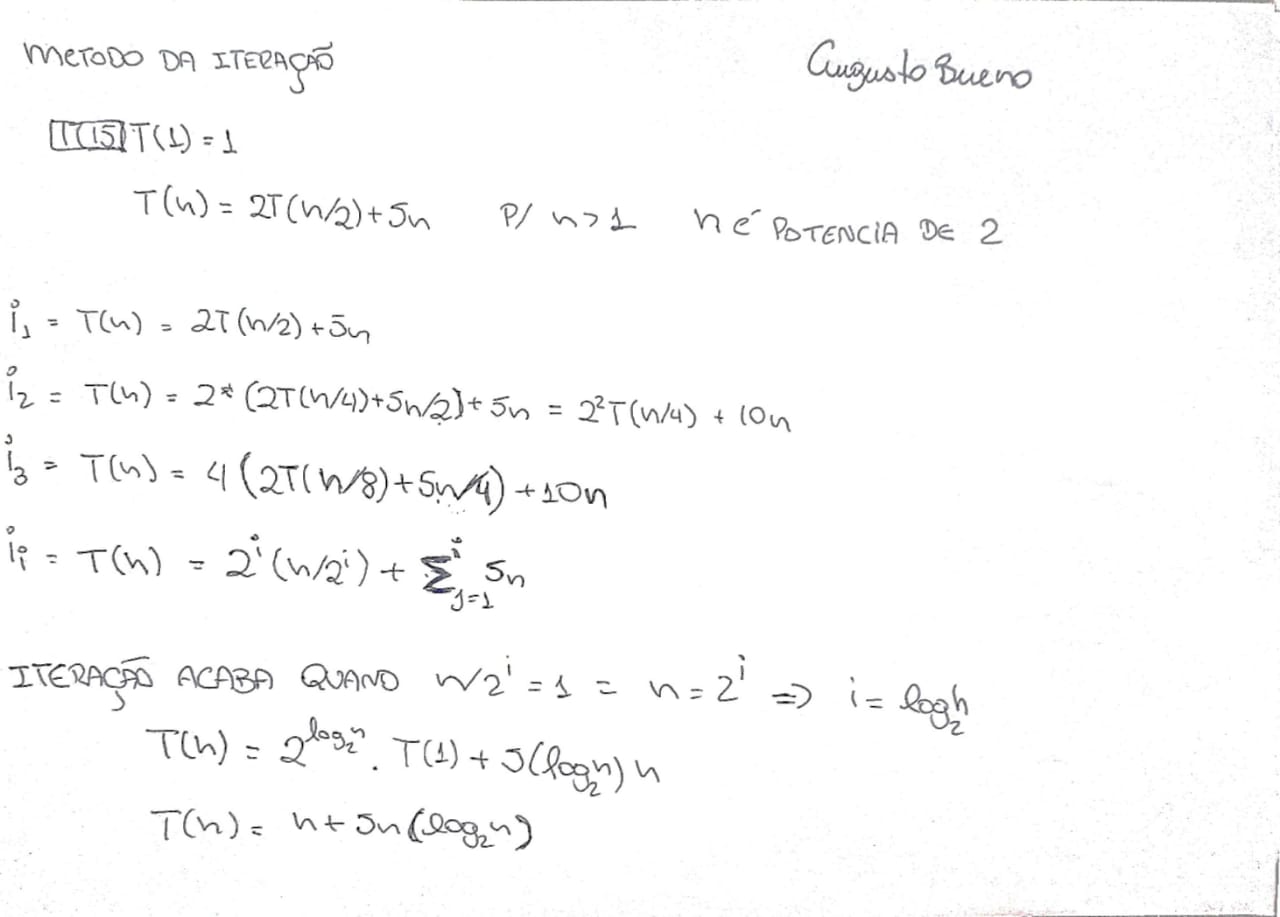 METODO DA ITERAÇÃO
Augusto Bueno
T(15) T(1) = 1
T(n) = 2T(n/2) + 5n P/ n>1 n é POTENCIA DE 2
i₁ = T(n) = 2T(n/2) + 5n
i₂ = T(n) = 2* (2T(n/4)+5n/2)+ 5n = 2²T(n/4) + 10n
i₃ = T(n) = 4 (2T(n/8)+5n/4) + 10n
iᵢ = T(n) = 2ⁱ (n/2ⁱ) + Σⁱⱼ₌₁ 5n
ITERAÇÃO ACABA QUANO n/2ⁱ = 1 = n = 2ⁱ => i = log₂n
T(n) = 2^log₂n . T(1) + 5(log₂n) n
T(n) = n + 5n (log₂n)